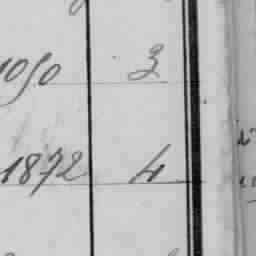 1050 3
1872 4